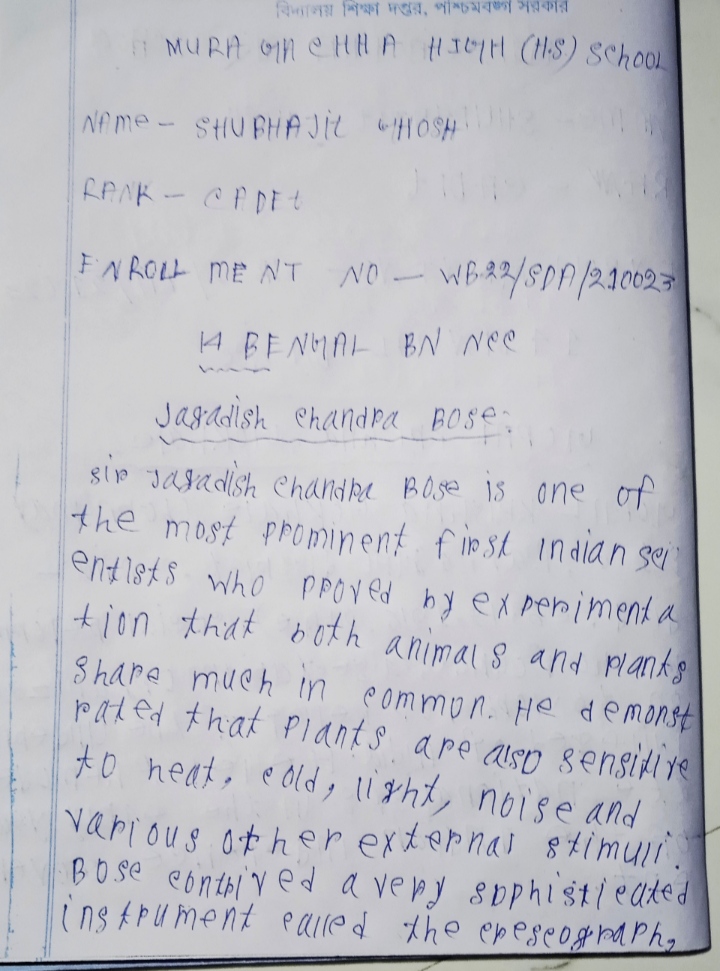 বিদ্যালয় শিক্ষা দপ্তর, পশ্চিমবঙ্গ সরকার
MURAGACHHA HIGH (H.S) SCHOOL
NAME - SHUBHAJIT GHOSH
RANK - CADET
ENROLLMENT NO - WB22/SDA/210023
14 BENGAL BN NCC
Jagadish Chandra Bose:
Sir Jagadish Chandra Bose is one of
the most prominent first Indian sci
entists who proved by experimenta
tion that both animals and plants
share much in common. He demonst
rated that plants are also sensitive
to heat, cold, light, noise and
various other external stimuli.
Bose contrived a very sophisticated
instrument called the crescograph,